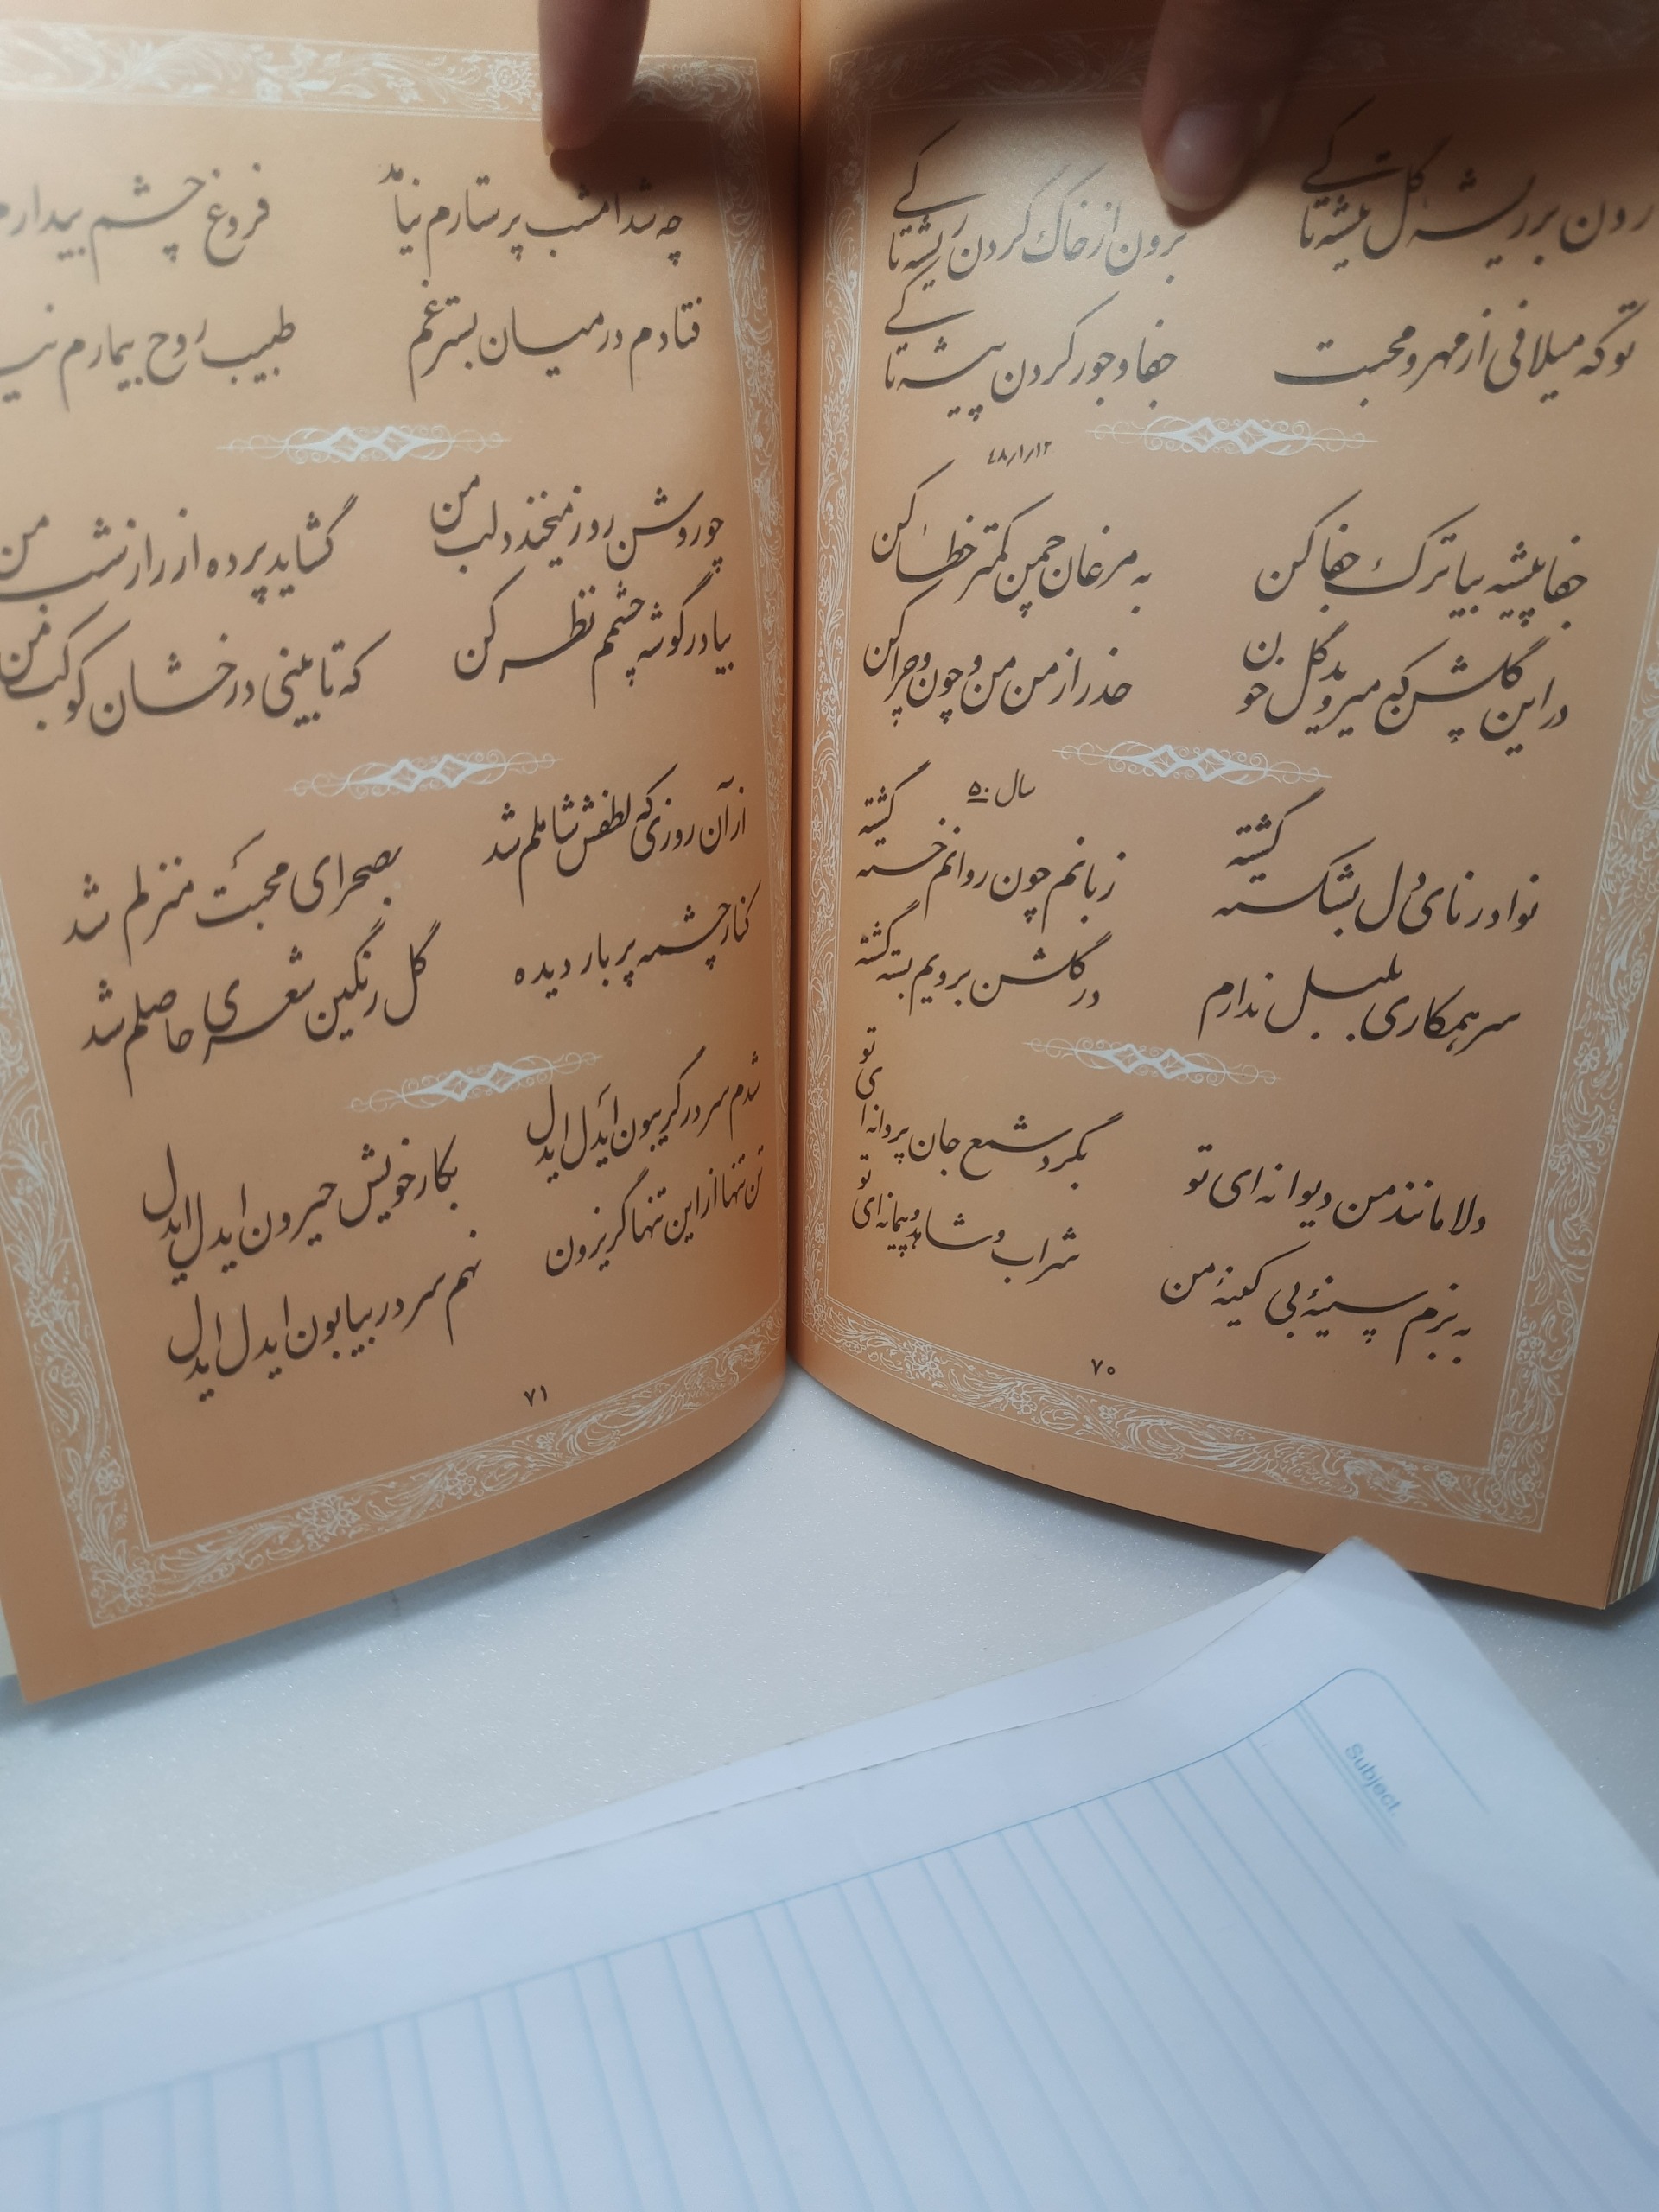 زدن بر ریشهٔ گل تیشه تا کی
برون از خاک کردن ریشه تا کی
تو که میلافی از مهر و محبت
جفا و جور کردن پیشه تا کی
۴۸/۱/۱۲
جفا پیشه بیا ترک جفا کن
به مرغان چمن کمتر خطا کن
در این گلشن که میروید گل و بن
حذر از من من و چون و چرا کن
سال ۵۰
نوا در نای دل بشکسته گشته
زبانم چون روانم خسته گشته
سر همکاری بلبل ندارم
در گلشن برویم بسته گشته
دلا مانند من دیوانه ای تو
بگرد شمع جان پروانه ای تو
به بزم سینهٔ بی کینهٔ من
شراب و شاهد و پیمانه ای تو
۷۰
چه شد امشب پرستارم نیامد
فروغ چشم بیدارم
فتادم در میان بستر غم
طبیب روح بیمارم
چو روشن روز میخندد لب من
گشاید پرده از راز شب من
بیا در گوشه چشمم نظر کن
که تا بینی درخشان کوکب من
از آن روزی که لطفش شاملم شد
بصحرای محبت منزلم شد
کنار چشمه پر بار دیده
گل رنگین شعری حاصلم شد
شدم سر در گریبون ایدل ایدل
بکار خویش حیرون ایدل ایدل
تن تنها از این تنها گریزون
نهم سر در بیابون ایدل ایدل
۷۱
Subject